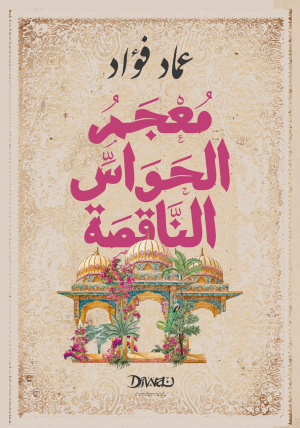 عماد فؤاد
مُعْجَمُ
الحَوَاسِّ
النَّاقِصَة